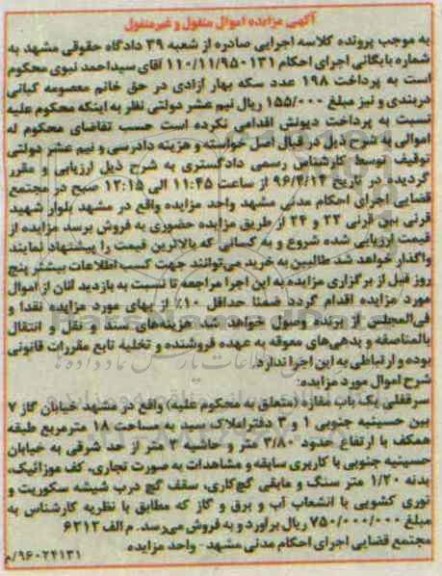 آگهی مزایده اموال منقول و غیرمنقول
به موجب پرونده کلاسه اجرایی صادره از شعبه ۳۹ دادگاه حقوقی مشهد به
شماره بایگانی اجرای احکام ۱۱۰/۱۱/۹۵۰۱۳۱ آقای سیداحمد نبوی محکوم
است به پرداخت ۱۹۸ عدد سکه بهار آزادی در حق خانم معصومه کیانی
دربندی و نیز مبلغ ۱۵۵/۰۰۰ ریال نیم عشر دولتی نظر به اینکه محکوم علیه
نسبت به پرداخت دیونش اقدامی نکرده است حسب تقاضای محکوم له
اموالی به شرح ذیل در قبال اصل خواسته و هزینه دادرسی و نیم عشر دولتی
توقیف توسط کارشناس رسمی دادگستری به شرح ذیل ارزیابی و مقرر
گردیده در تاریخ ۹۶/۴/۱۴ از ساعت ۱۱:۴۵ الی ۱۲:۱۵ صبح در مجتمع
قضایی اجرای احکام مدنی مشهد واحد مزایده واقع در مشهد بلوار شهید
قرنی بین قرنی ۲۲ و ۲۴ از طریق مزایده حضوری به فروش برسد مزایده از
قیمت ارزیابی شده شروع و به کسانی که بالاترین قیمت را پیشنهاد نمایند
واگذار خواهد شد طالبین به خرید می‌توانند جهت کسب اطلاعات بیشتر پنج
روز قبل از برگزاری مزایده به این اجرا مراجعه تا نسبت به بازدید آنان از اموال
مورد مزایده اقدام گردد ضمنا حداقل ۱۰٪ از بهای مورد مزایده نقدا و
فی‌المجلس از برنده وصول خواهد شد هزینه‌های سند و نقل و انتقال
بالمناصفه و بدهی‌های معوقه به عهده فروشنده و تخلیه تابع مقررات قانونی
بوده و ارتباطی به این اجرا ندارد.
شرح اموال مورد مزایده:
سرقفلی یک باب مغازه (متعلق به محکوم علیه) واقع در مشهد خیابان گاز ۷
بین حسینیه جنوبی ۱ و ۳ دفتر املاک سید به مساحت ۱۸ مترمربع طبقه
همکف با ارتفاع حدود ۳/۸۰ متر و حاشیه ۳ متر از حد شرقی به خیابان
حسینیه جنوبی با کاربری سابقه و مشاهدات به صورت تجاری، کف موزائیک،
بدنه ۱/۲۰ متر سنگ و مابقی گچ‌کاری، سقف گچ درب شیشه سکوریت و
توری کشویی با انشعاب آب و برق و گاز که مطابق با نظریه کارشناس به
مبلغ ۷۵۰/۰۰۰/۰۰۰ ریال برآورد و به فروش می‌رسد. م الف ۶۲۱۳
مجتمع قضایی اجرای احکام مدنی مشهد- واحد مزایده
۹۶۰۲۴۱۳۱/م